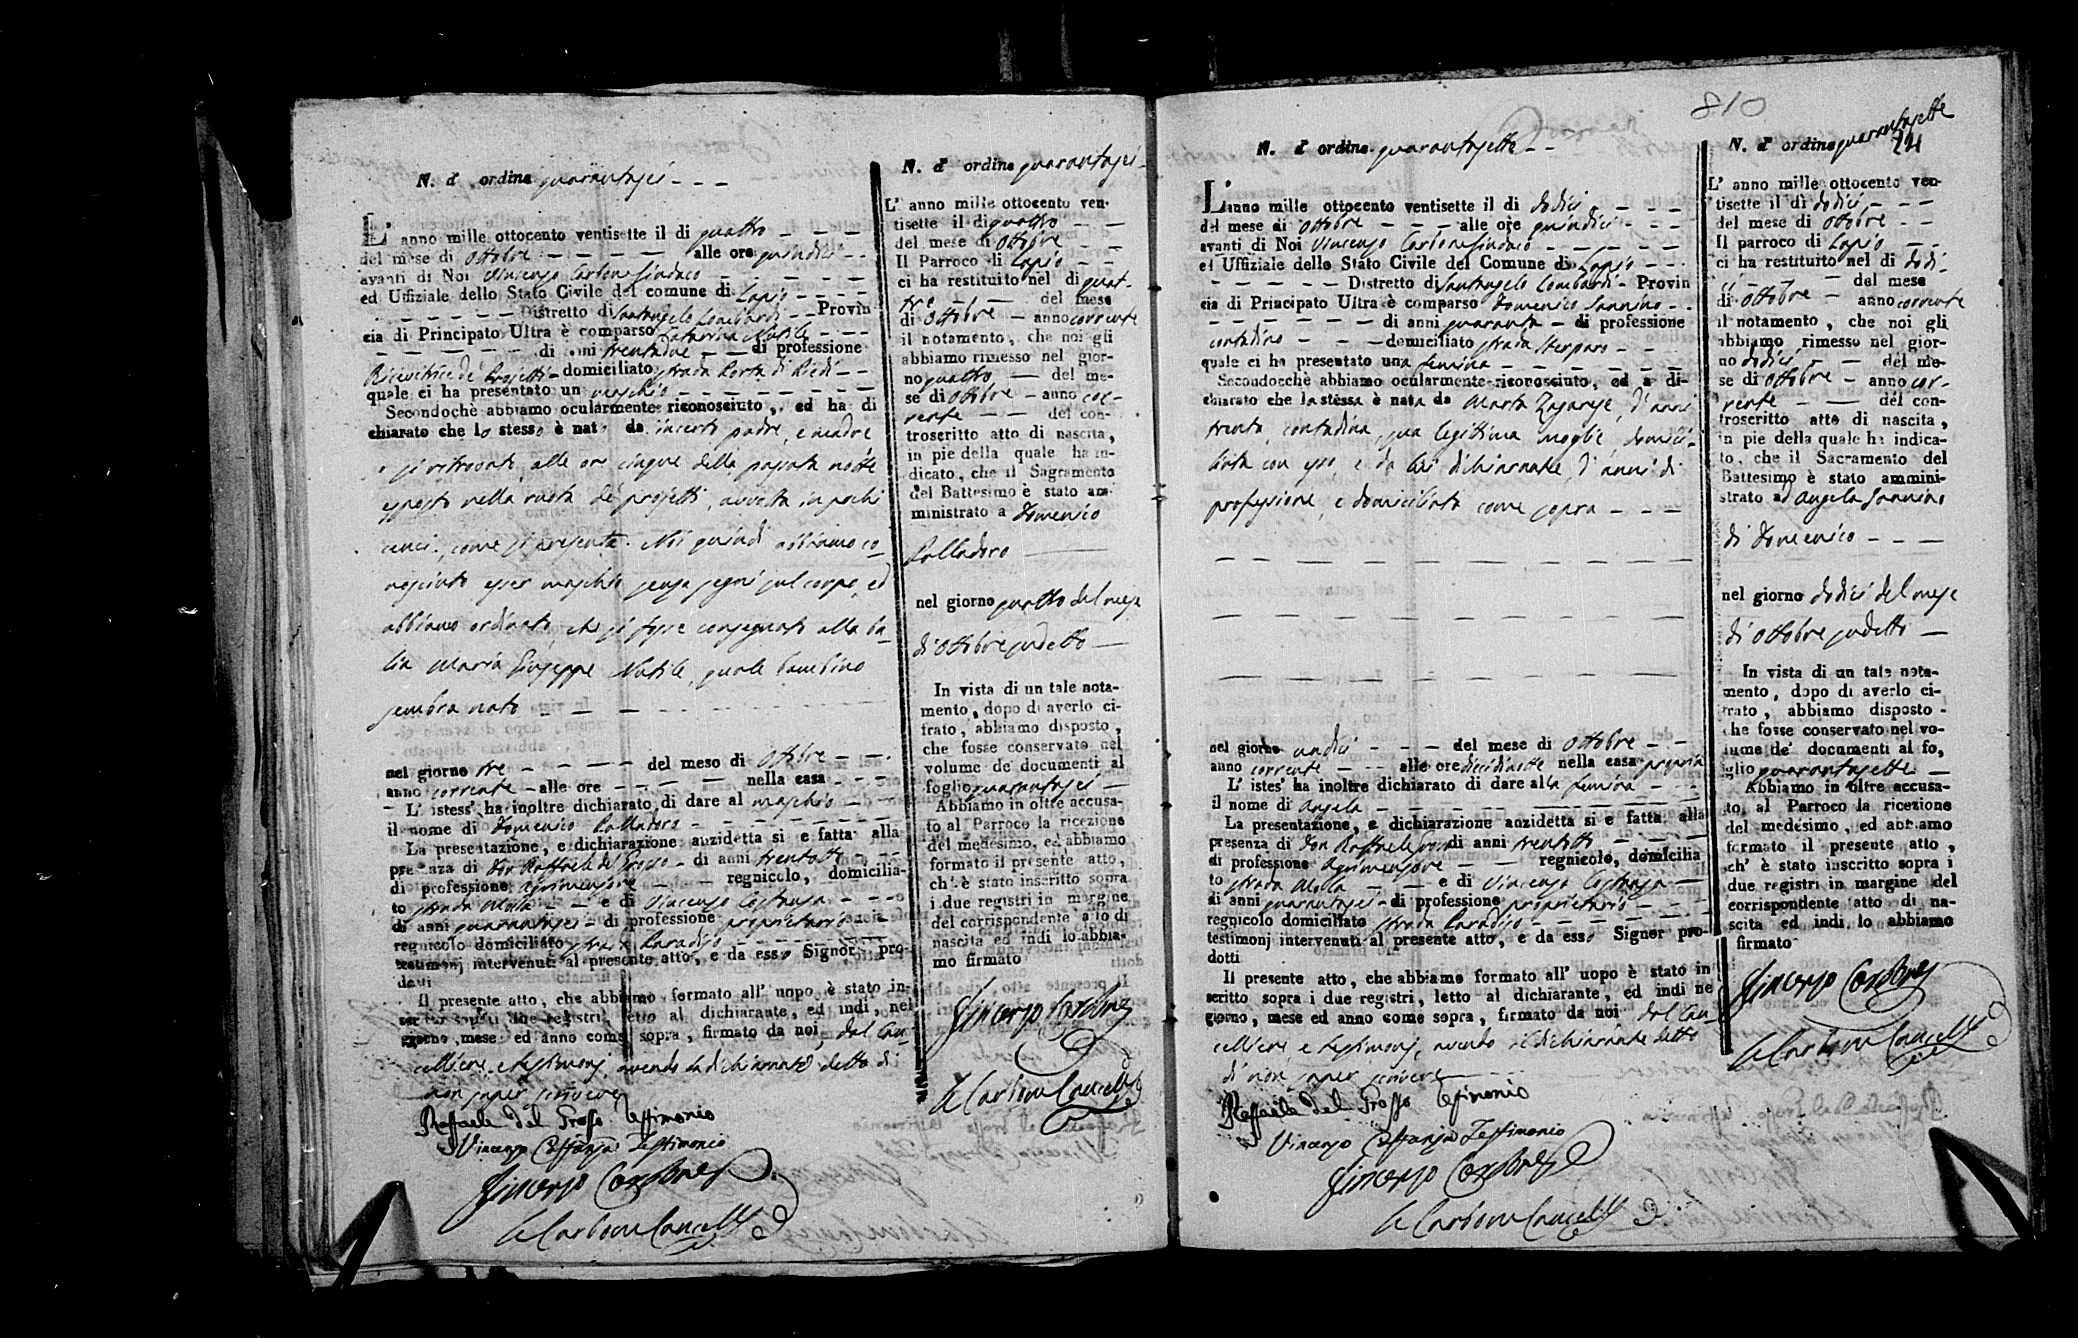 N. d' ordine quarantasei - - -
L' anno mille ottocento ventisette il di quattro - - -
del mese di Ottobre - - - - - alle ore quindici - -
avanti di Noi Vincenzo Carbone Sindaco - - - - -
ed Uffiziale dello Stato Civile del comune di Lapio - - - -
- - - - - - Distretto di Santangelo Lombardi - - Provin
cia di Principato Ultra è comparso Catarina Natile - - -
- - - - - - di anni trentadue - - di professione
Ricevitrice de' Projetti - domiciliato strada Porta di Piedi - -
quale ci ha presentato un maschio - - - - - -
Secondochè abbiamo ocularmente riconosciuto, ed ha di
chiarato che lo stesso è nato da incerto padre, e madre
si ritrovato alle ore cinque della passata notte
esposto nella ruota de' projetti, avvolto in pochi
cenci, come si presenta. Noi quindi abbiamo co-
nosciuto esser maschio senza segni sul corpo, ed
abbiamo ordinato, che si fosse consegnato alla ba-
lia Maria Giuseppe Natile, quale bambino
sembra nato - - - - - - -
nel giorno tre - - - - - del mese di Ottobre - - -
anno corrente - alle ore - - - - - nella casa - - -
- L' istess' ha inoltre dichiarato di dare al maschio - -
il nome di Domenico Palladoro - - - - - - - -
La presentazione, e dichiarazione anzidetta si e fatta alla
presenza di Don Raffaele del Grosso - di anni trentotto - - -
di professione agrimensore - - - regnicolo, domicilia-
to strada Molla - - e di Vincenzo Costanza - - -
di anni quarantasei - di professione proprietario - - -
regnicolo domiciliato strada Paradiso - - - - - -
testimonj intervenuti al presente atto, e da esso Signor pro-
dotti
Il presente atto, che abbiamo formato all' uopo è stato in-
scritto sopra i due registri, letto al dichiarante, ed indi, nel
giorno, mese ed anno come sopra, firmato da noi, dal Can-
celliere, e testimonj, avendo la dichiarante detto di
non saper scrivere
Raffaele del Grosso testimonio
Vincenzo Costanza Testimonio
Vincenzo Carbone
Carbone Cancell
N. d' ordine quarantasei -
L' anno mille ottocento ven-
tisette il di quattro - -
del mese di Ottobre - -
Il Parroco di Lapio - -
ci ha restituito nel di quat-
tro - - del mese
di Ottobre - anno corrente
il notamento, che noi gli
abbiamo rimesso nel gior-
no quattro - del me-
se di Ottobre - anno cor-
rente - - del con-
troscritto atto di nascita,
in pie della quale ha in-
dicato, che il Sagramento
del Battesimo è stato am-
ministrato a Domenico
Palladoro -
nel giorno quattro del mese
di Ottobre sudetto -
In vista di un tale nota-
mento, dopo di averlo ci-
frato, abbiamo disposto,
che fosse conservato nel
volume de documenti al
foglio quarantasei -
Abbiamo in oltre accusa-
to al Parroco la ricezione
del medesimo, ed abbiamo
formato il presente atto,
ch' è stato inscritto sopra
i due registri in margine
del corrispondente atto di
nascita ed indi lo abbia-
mo firmato
Vincenzo Carbone
Carbone Cancell
810
N. d' ordine quarantasette - -
L'anno mille ottocento ventisette il di dodici - - - -
del mese di Ottobre - - - alle ore quindici - - -
avanti di Noi Vincenzo Carbone Sindaco - - - - -
ed Uffiziale dello Stato Civile del Comune di Lapio - - -
- - - - - - Distretto di Santangelo Lombardi - Provin
cia di Principato Ultra è comparso Domenico Iannino - -
- - - - - - - di anni quaranta - di professione
contadino - - - domiciliato strada Sterparo - - -
quale ci ha presentato una femina - - - - - -
Secondocchè abbiamo ocularmente riconosciuto, ed a di-
chiarato che la stessa è nata da Marta Zagarese, d'anni
trenta, contadina, sua legittima moglie, domici-
liata con esso, e da lui dichiarante, d'anni, di
professione, e domiciliato come sopra - - -
nel giorno undici - - - del mese di Ottobre - -
anno corrente - - alle ore diecidisette nella casa propria
L' istes' ha inoltre dichiarato di dare alla femina - -
il nome di Angela - - - - - - - - -
La presentazione, e dichiarazione anzidetta si e fatta alla
presenza di Don Raffaele di anni trentotto - - -
di professione agrimensore - - - regnicolo, domicilia
to strada Molla - - - e di Vincenzo Costanza -
di anni quarantasei - di professione proprietario - - -
regnicolo domiciliato strada Paradiso - - - - -
testimonj intervenuti al presente atto, e da esso Signor pro-
dotti
Il presente atto, che abbiamo formato all' uopo è stato in
scritto sopra i due registri, letto al dichiarante, ed indi ne
giorno, mese ed anno come sopra, firmato da noi dal Can-
celliere, e testimonj, avendo il dichiarante detto
di non saper scrivere
Raffaele del Grosso testimonio
Vincenzo Costanza Testimonio
Vincenzo Carbone
Carbone Cancell
N. d' ordine quarantasette
24
L' anno mille ottocento ven-
tisette il di dodici - - -
del mese di Ottobre - -
Il parroco di Lapio - -
ci ha restituito nel di dodi-
ci - - - del mese
di Ottobre - anno corrente
il notamento, che noi gli
abbiamo rimesso nel gior-
no dodici - - del me-
se di Ottobre - anno cor-
rente - - del con-
troscritto atto di nascita,
in pie della quale ha indica-
to, che il Sacramento del
Battesimo è stato ammini-
strato ad Angela Iannino
di Domenico - - -
nel giorno dodici del mese
di Ottobre sudetto -
In vista di un tale nota-
mento, dopo di averlo ci-
frato, abbiamo disposto
che fosse conservato nel vo-
lume de' documenti al fo,
glio quarantasette -
Abbiamo in oltre accusa-
to, al Parroco la ricezione
del medesimo, ed abbiamo
formato il presente atto,
ch' è stato inscritto sopra i
due registri in margine del
corrispondente atto di na-
scita ed indi lo abbiamo
firmato
Vincenzo Carbone
Carbone Cancell